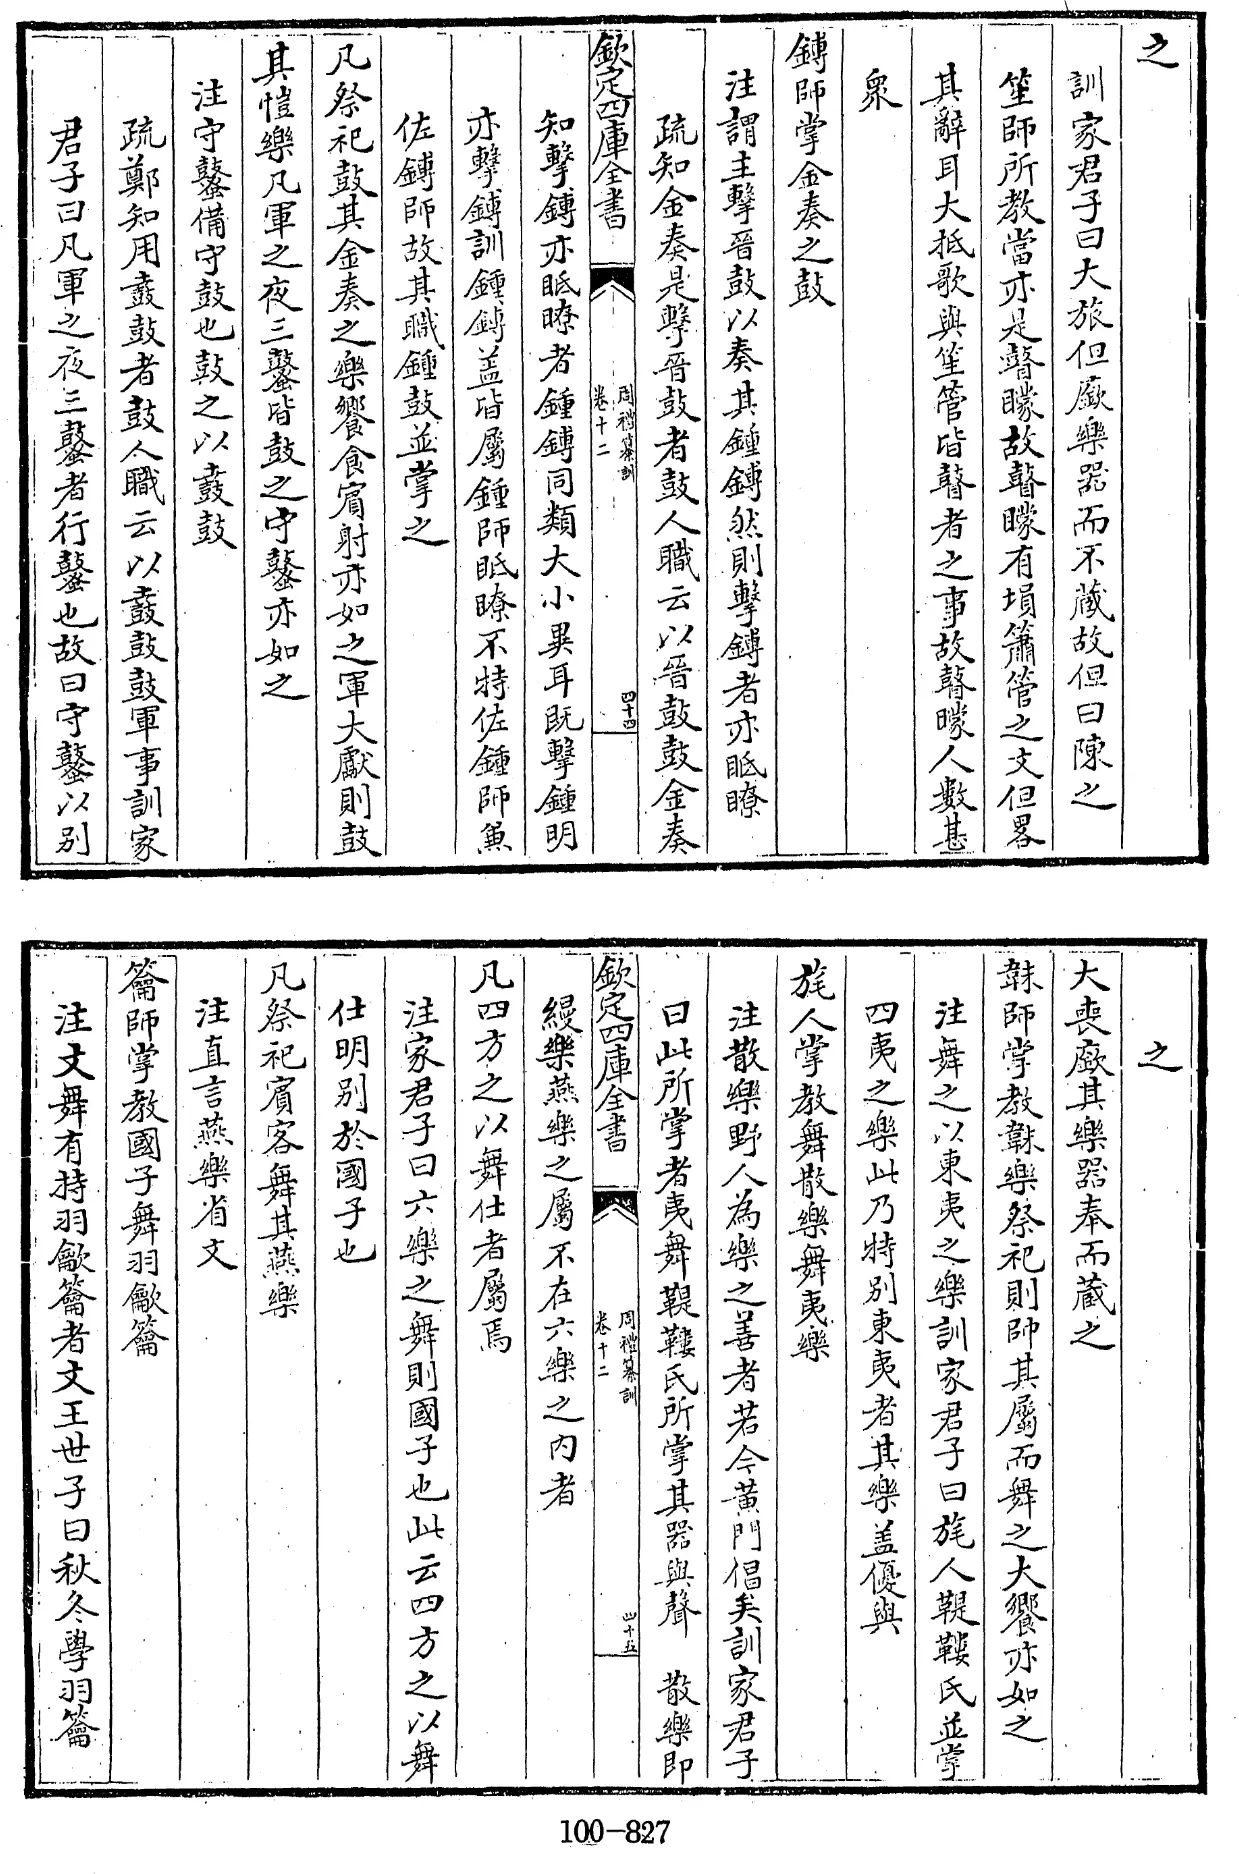 之
訓家君子曰大旅但廞樂器而不藏故但曰陳之
笙師所教當亦是瞽矇故瞽矇有塤簫管之文但畧
其辭耳大抵歌與笙管皆瞽者之事故瞽矇人數甚
衆
鎛師掌金奏之鼓
注謂主擊晉鼓以奏其鍾鎛然則擊鎛者亦眡瞭
疏知金奏是擊晉鼓者鼓人職云以晉鼓鼓金奏
欽定四庫全書
周禮纂訓
卷十二
四十四
知擊鎛亦眡瞭者鍾鎛同類大小異耳既擊鍾明
亦擊鎛訓鍾鎛盖皆屬鍾師眡瞭不特佐鍾師兼
佐鎛師故其職鍾鼓並掌之
凡祭祀鼓其金奏之樂饗食賓射亦如之軍大獻則鼓
其愷樂凡軍之夜三鼜皆鼓之守鼜亦如之
注守鼜備守鼓也鼓之以鼖鼓
疏鄭知用鼖鼓者鼓人職云以鼖鼓鼓軍事訓家
君子曰凡軍之夜三鼜者行鼜也故曰守鼜以别
之
大喪廞其樂器奉而藏之
韎師掌教韎樂祭祀則帥其屬而舞之大饗亦如之
注舞之以東夷之樂訓家君子曰旄人鞮鞻氏並掌
四夷之樂此乃特别東夷者其樂盖優與
旄人掌教舞散樂舞夷樂
注散樂野人為樂之善者若今黄門倡矣訓家君子
曰此所掌者夷舞鞮鞻氏所掌其器與聲 散樂即
欽定四庫全書
周禮纂訓
卷十二
四十五
縵樂燕樂之屬不在六樂之内者
凡四方之以舞仕者屬焉
注家君子曰六樂之舞則國子也此云四方之以舞
仕明别於國子也
凡祭祀賓客舞其燕樂
注直言燕樂省文
籥師掌教國子舞羽龡籥
注文舞有持羽龡籥者文王世子曰秋冬學羽籥
100-827